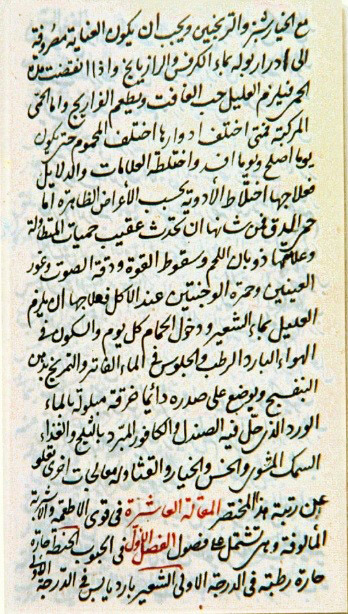 مع الخيارشنبر والترنجبين ويجب ان يكون العناية مصروفة
الى ادرار بوله بماء الكرفس والرازيانج واذا انقضت مدة
الحمى فيلزم العليل حب الغافت ويطعم الفراريج واما الحمى
المركبة فمتى اختلف ادوارها اختلف المحموم حتى يكون
يوما اصلح ويوما اف واختلطة العلامات والدلايل
فعلاجها اختلاط الأدوية بحسب الأعراض الظاهرة اما
حمى الدق فمن شانها ان تحدث عقيب حميات المتطاولة
وعلامتها ذوبان اللحم وسقوط القوة ودقة الصوت وغور
العينين وحمرة الوجنتين عند الأكل فعلاجها ان يلزم
العليل بماء الشعير ودخول الحمام كل يوم والسكون في
الهواء البارد الرطب والجلوس في الماء الفاتر والتمريخ بدهن
البنفسج ويوضع على صدره دائما خرقة مبلولة بالماء
الورد الذي حل فيه الصندل والكافور المبرد بالثلج والغذاء
السمك المشوى والخس والخيار والقثاء ولمعالجات اخرى تعلو
عن رتبة هذا المختصر المقالة العاشرة في قوى الاطعمة والاشربة
المألوفة وهي تشتمل على فصول الفصل الأول في الحبوب الحنطة حارة
حارة رطبة في الدرجة الاولى الشعير بارد يابس في الدرجة